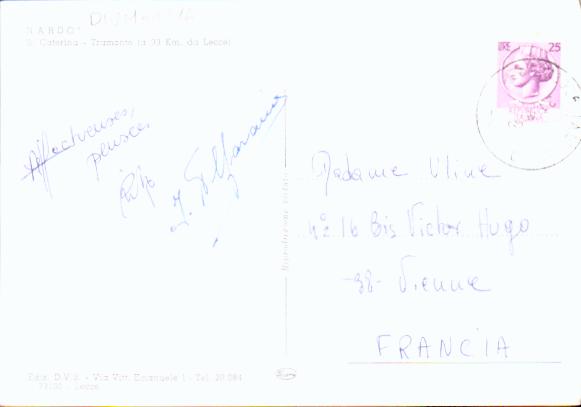 NARDO'
S. Caterina - Tramonto (a 33 Km. da Lecce)
LIRE 25
Affectueuses
pensées
Rita
Madame Uline
N° 16 Bis Victor Hugo
-38- Vienne
FRANCIA
Riproduzione vietata
Ediz. D.V.S. - Via Vitt. Emanuele I - Tel. 20.084
73100 - Lecce